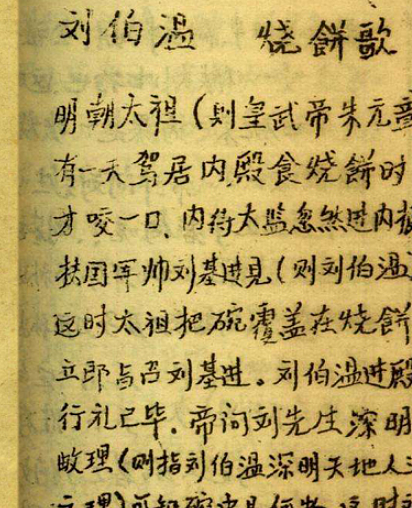 刘伯温 烧餅歌
明朝太祖(则皇武帝朱元童
有一天驾居内殿食烧餅时
才咬一口、内待太监忽然进内
扶国军帅刘基进見(则刘伯温
这时太祖把碗覆盖在烧餅
立即与召刘基进。刘伯温进殿
行礼已毕.帝问刘先生深明
数理(则指刘伯温深明天地人
碗